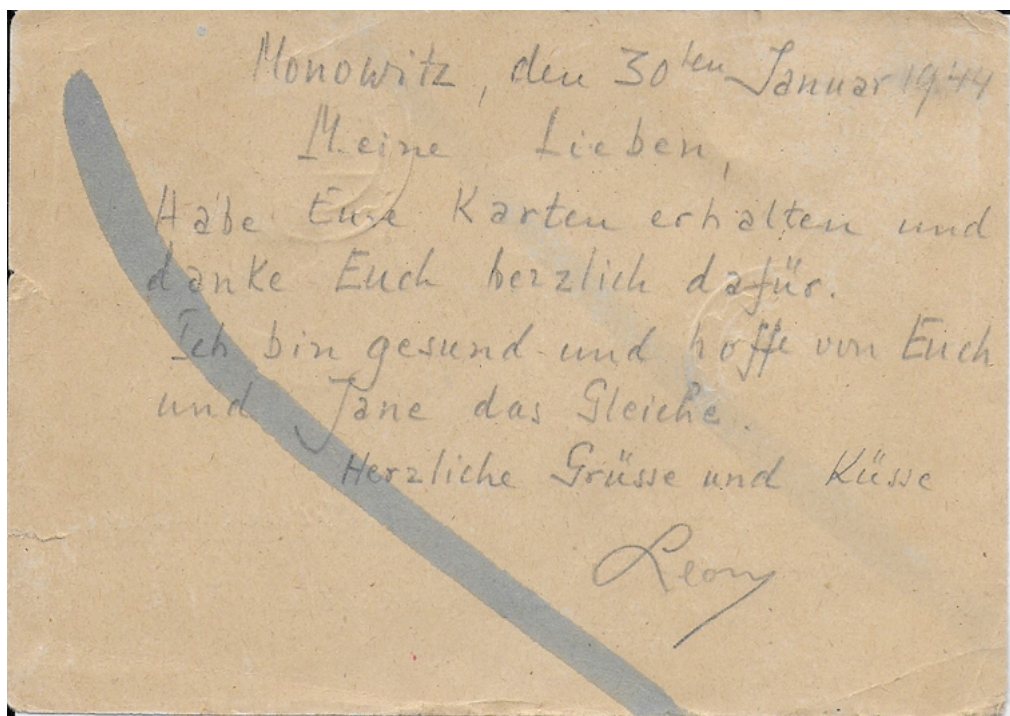 Monowitz, den 30ten Januar 1944
Meine Lieben,
Habe Eure Karten erhalten und
danke Euch herzlich dafür.
Ich bin gesund und hoffe von Euch
und Jane das Gleiche.
Herzliche Grüsse und Küsse
Leon